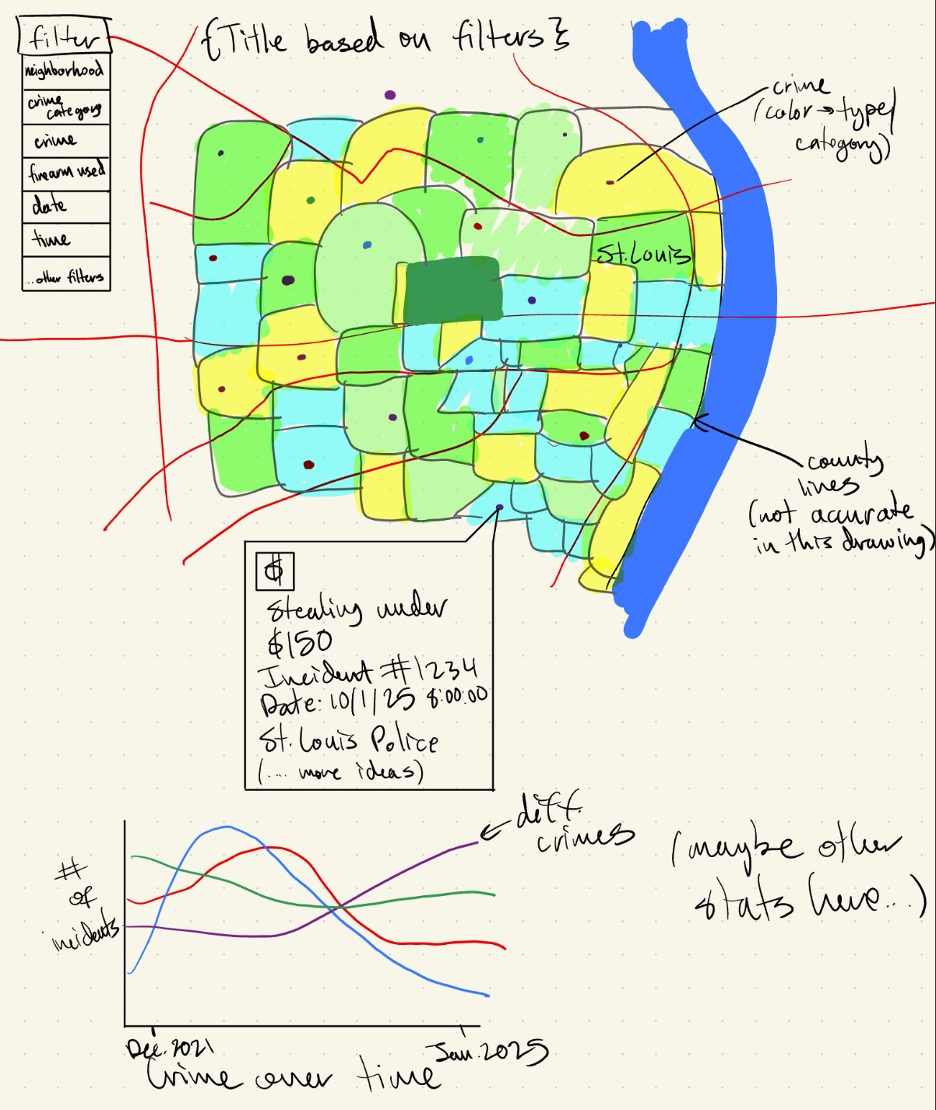 filter
neighborhood
crime
category
crime
firearm used
date
time
...other filters
{Title based on filters}
crime
(color→type/
category)
St.Louis
county
lines
(not accurate
in this drawing)
$
Stealing under
$150
Incident #1234
Date: 10/1/25 8:00:00
St. Louis Police
(... more ideas)
diff.
crimes
#
of
incidents
(maybe other
stats here...)
Dec. 2021
Jan. 2025
Crime over time